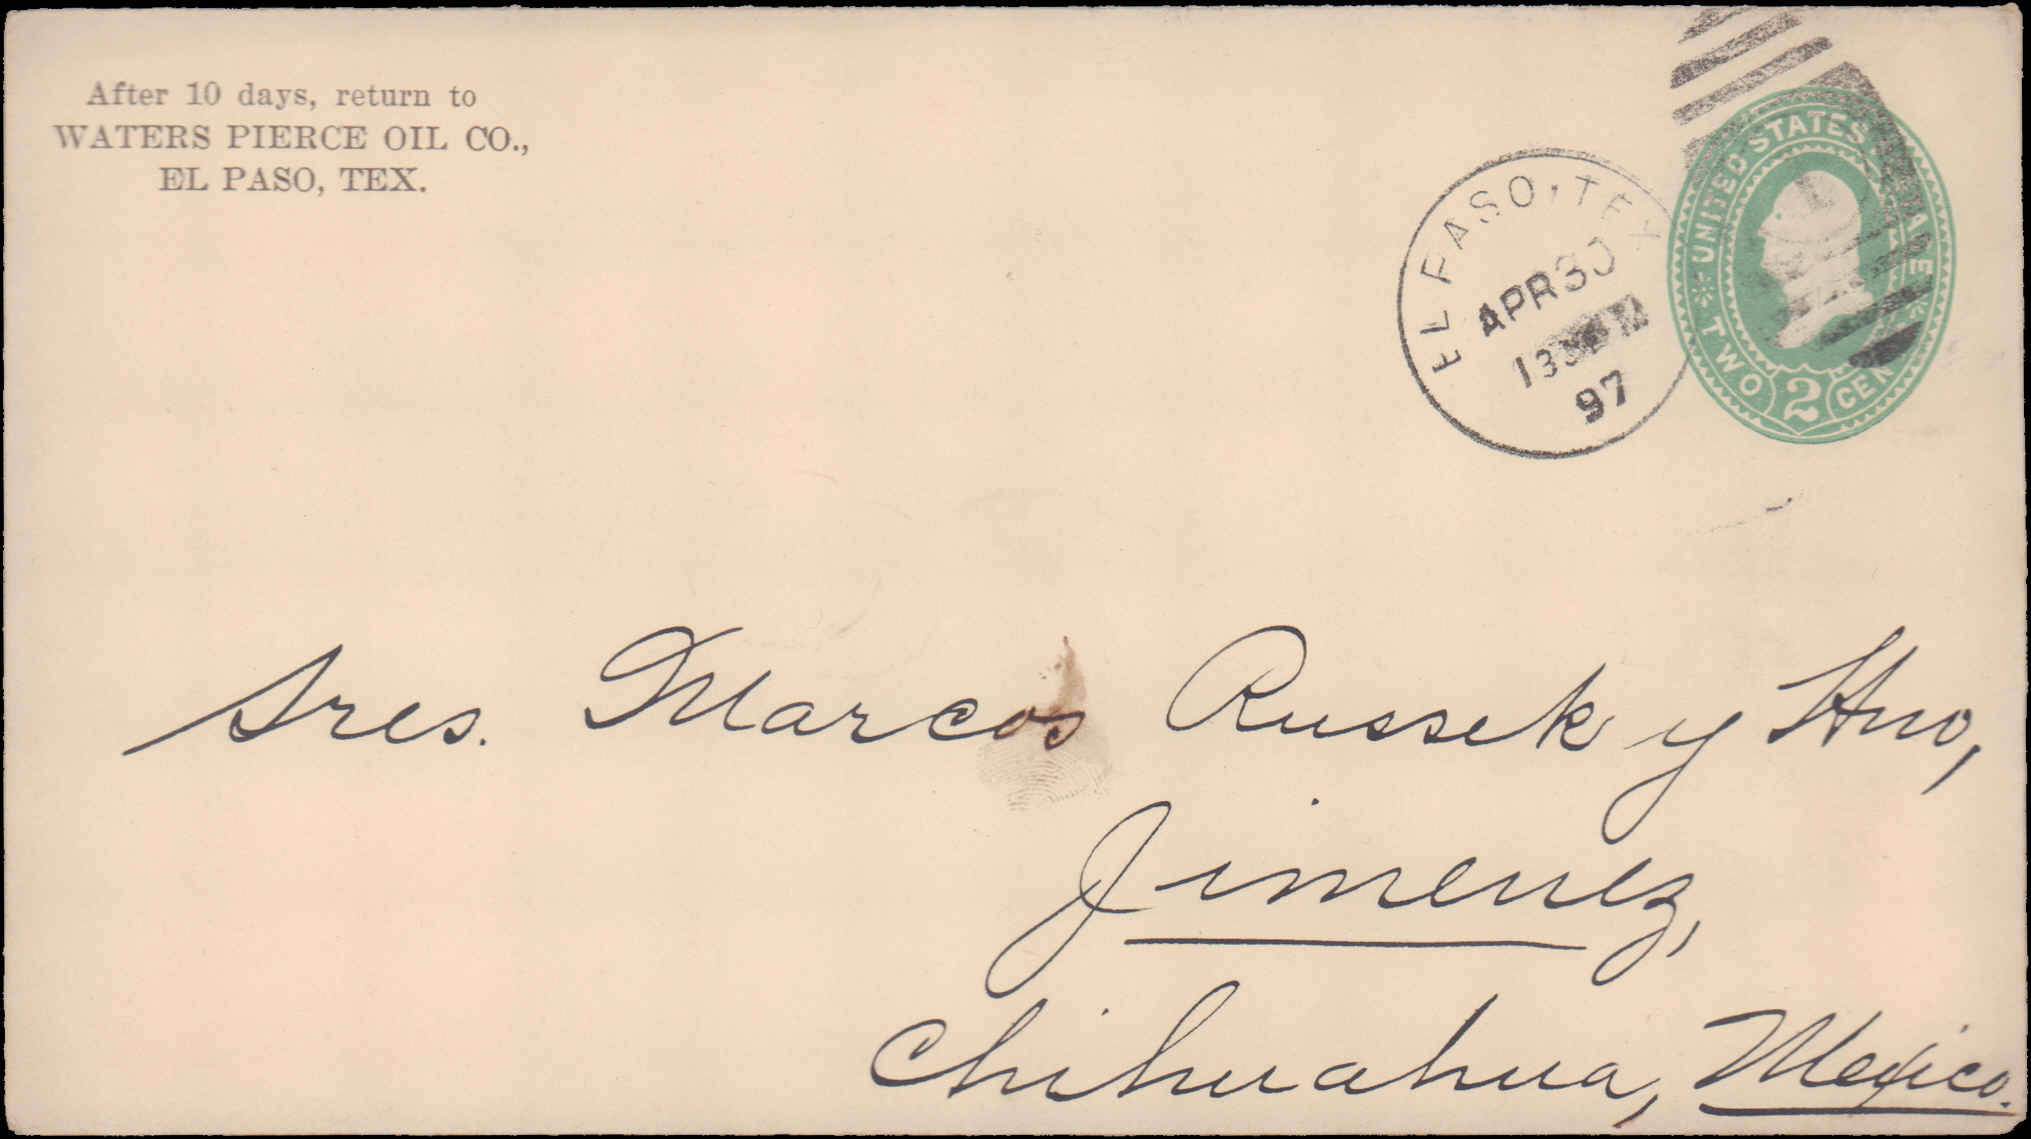 After 10 days, return to
WATERS PIERCE OIL CO.,
EL PASO, TEX.
EL PASO, TEX
APR 30
97
UNITED STATES
TWO 2 CEN
Sres. Marcos Russek y Hno,
Jimenez,
Chihuahua, Mexico.